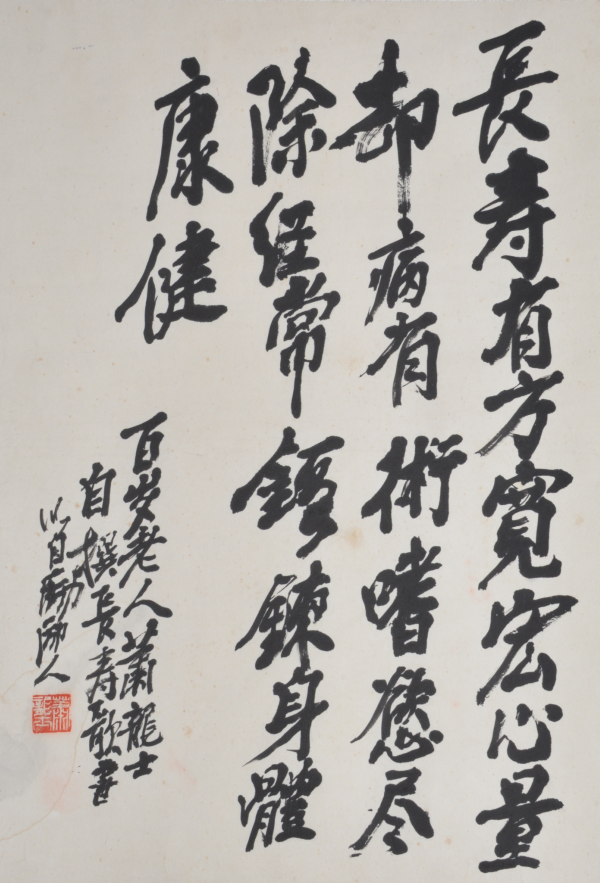 長寿有方寬宏心量
却病有術嗜慾尽
除經常鍛鍊身體
康健
百岁老人蕭龍士
自撰長寿歌書
以自勵勵人